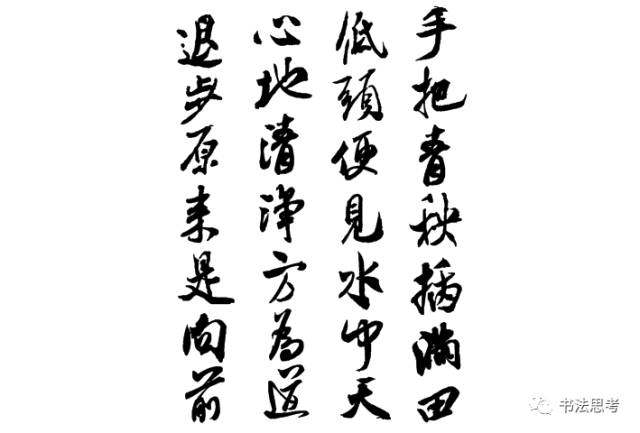 手把青秧插滿田
低頭便見水中天
心地清淨方為道
退步原来是向前
书法思考